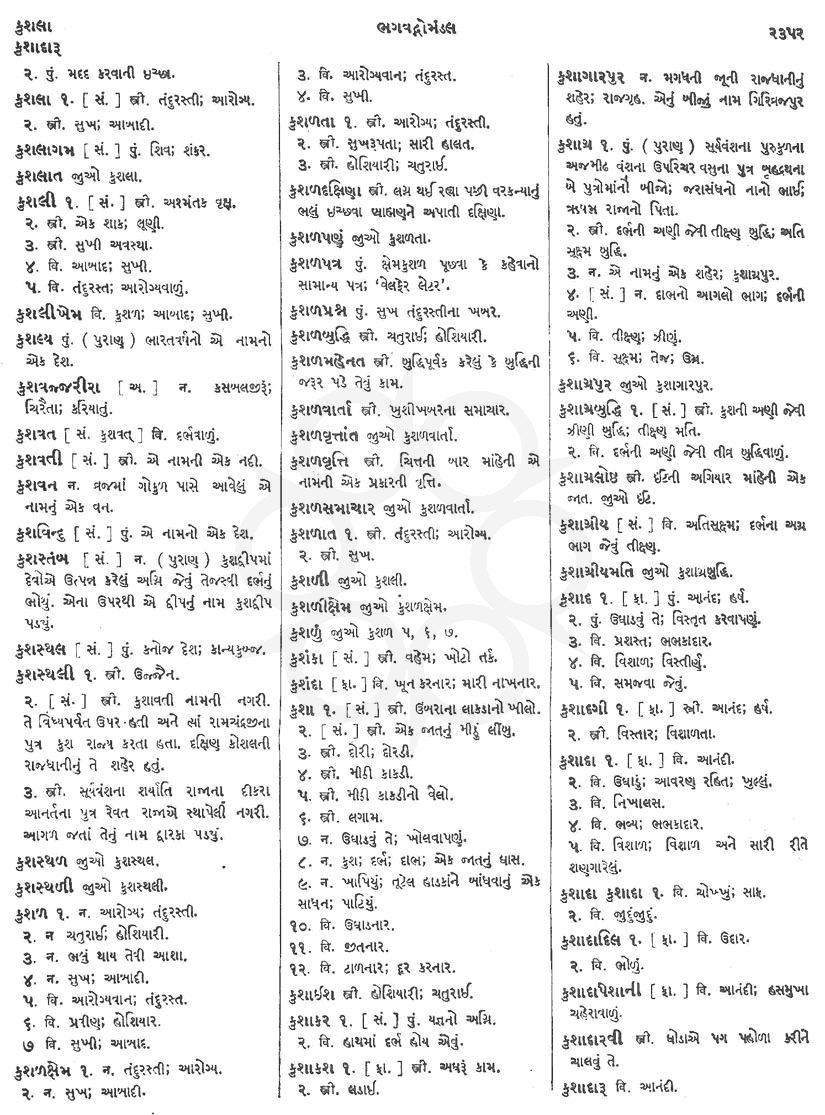 કુશલા
કુશાદારૂ
ભગવદ્ગોમંડલ
૨૩૫૨
૨. પું. મદદ કરવાની ઇચ્છા.
કુશલા ૧. [ સં. ] સ્ત્રી. તંદુરસ્તી; આરોગ્ય.
૨. સ્ત્રી. સુખ; આબાદી.
કુશલાગમ [ સં. ] પું. શિવ; શંકર.
કુશલાત જુઓ કુશલા.
કુશલી ૧. [ સં. ] સ્ત્રી. અશ્મંતક વૃક્ષ.
૨. સ્ત્રી. એક શાક; લૂણી.
૩. સ્ત્રી. સુખી અવસ્થા.
૪. વિ. આબાદ; સુખી.
૫. વિ. તંદુરસ્ત; આરોગ્યવાળું.
કુશલીખેમ વિ. કુશળ; આબાદ; સુખી.
કુશલ્ય પું. ( પુરાણ ) ભારતવર્ષનો એ નામનો
એક દેશ.
કુશવજ્જરીરા [ અ. ] ન. કસબલજીરૂં;
ચિરૈતા; કરિયાતું.
કુશવત [ સં. કુશવત્ ] વિ. દર્ભવાળું.
કુશવતી [ સં. ] સ્ત્રી. એ નામની એક નદી.
કુશવન ન. વ્રજમાં ગોકુળ પાસે આવેલું એ
નામનું એક વન.
કુશવિન્દુ [ સં. ] પું. એ નામનો એક દેશ.
કુશસ્તંબ [ સં. ] ન. ( પુરાણ ) કુશદ્વીપમાં
દેવોએ ઉત્પન્ન કરેલું અગ્નિ જેવું તેજસ્વી દર્ભનું
ભોથું. એના ઉપરથી એ દ્વીપનું નામ કુશદ્વીપ
પડ્યું.
કુશસ્થલ [ સં. ] પું. કનોજ દેશ; કાન્યકુબ્જ.
કુશસ્થલી ૧. સ્ત્રી. ઉજ્જૈન.
૨. [ સં. ] સ્ત્રી. કુશાવતી નામની નગરી.
તે વિંધ્યપર્વત ઉપર હતી અને ત્યાં રામચંદ્રજીના
પુત્ર કુશ રાજ્ય કરતા હતા. દક્ષિણ કોશલની
રાજધાનીનું તે શહેર હતું.
૩. સ્ત્રી. સૂર્યવંશના શર્યાતિ રાજાના દીકરા
આનર્તના પુત્ર રેવત રાજાએ સ્થાપેલી નગરી.
આગળ જતાં તેનું નામ દ્વારકા પડ્યું.
કુશસ્થળ જુઓ કુશસ્થલ.
કુશસ્થળી જુઓ કુશસ્થલી.
કુશળ ૧. ન. આરોગ્ય; તંદુરસ્તી.
૨. ન ચતુરાઈ; હોશિયારી.
૩. ન. ભલું થાય તેવી આશા.
૪. ન. સુખ; આબાદી.
૫. વિ. આરોગ્યવાન; તંદુરસ્ત.
૬. વિ. પ્રવીણ; હોશિયાર.
૭ વિ. સુખી; આબાદ.
કુશળક્ષેમ ૧. ન. તંદુરસ્તી; આરોગ્ય.
૨. ન. સુખ; આબાદી.
૩. વિ. આરોગ્યવાન; તંદુરસ્ત.
૪. વિ. સુખી.
કુશળતા ૧. સ્ત્રી. આરોગ્ય; તંદુરસ્તી.
૨. સ્ત્રી. સુખરૂપતા; સારી હાલત.
૩. સ્ત્રી. હોશિયારી; ચતુરાઈ.
કુશળદક્ષિણા સ્ત્રી. લગ્ન થઈ રહ્યા પછી વરકન્યાનું
ભલું ઇચ્છવા બ્રાહ્મણને અપાતી દક્ષિણા.
કુશળપણું જુઓ કુશળતા.
કુશળપત્ર પું. ક્ષેમકુશળ પૂછવા કે કહેવાનો
સામાન્ય પત્ર; ‘વેલફેર લેટર’.
કુશળપ્રશ્ન પું. સુખ તંદુરસ્તીના ખબર.
કુશળબુદ્ધિ સ્ત્રી. ચતુરાઈ; હોશિયારી.
કુશળમહેનત સ્ત્રી. બુદ્ધિપૂર્વક કરેલું કે બુદ્ધિની
જરૂર પડે તેવું કામ.
કુશળવાર્તા સ્ત્રી. ખુશીખબરના સમાચાર.
કુશળવૃત્તાંત જુઓ કુશળવાર્તા.
કુશળવૃત્તિ સ્ત્રી. ચિત્તની બાર માંહેની એ
નામની એક પ્રકારની વૃત્તિ.
કુશળસમાચાર જુઓ કુશળવાર્તા.
કુશળાત ૧. સ્ત્રી. તંદુરસ્તી; આરોગ્ય.
૨. સ્ત્રી. સુખ.
કુશળી જુઓ કુશલી.
કુશળીક્ષેમ જુઓ કુશળક્ષેમ.
કુશળું જુઓ કુશળ ૫, ૬, ૭.
કુશંકા [ સં. ] સ્ત્રી. વહેમ; ખોટો તર્ક.
કુશંદા [ ફા. ] વિ. ખૂન કરનાર; મારી નાખનાર.
કુશા ૧. [ સં. ] સ્ત્રી. ઉંબરાના લાકડાનો ખીલો.
૨. [ સં. ] સ્ત્રી. એક જાતનું મીઠું લીંબુ.
૩. સ્ત્રી. દોરી; દોરડી.
૪. સ્ત્રી. મીઠી કાકડી.
૫. સ્ત્રી. મીઠી કાકડીનો વેલો.
૬. સ્ત્રી. લગામ.
૭. ન. ઉઘાડવું તે; ખોલવાપણું.
૮. ન. કુશ; દર્ભ; દાભ; એક જાતનું ઘાસ.
૯. ન. ખાપિયું; તૂટેલ હાડકાંને બાંધવાનું એક
સાધન; પાટિયું.
૧૦. વિ. ઉઘાડનાર.
૧૧. વિ. જીતનાર.
૧૨. વિ. ટાળનાર; દૂર કરનાર.
કુશાઈશ સ્ત્રી. હોશિયારી; ચતુરાઈ.
કુશાકર ૧. [ સં. ] પું. યજ્ઞનો અગ્નિ.
૨. વિ. હાથમાં દર્ભ હોય એવું.
કુશાકશ ૧. [ ફા. ] સ્ત્રી. અઘરૂં કામ.
૨. સ્ત્રી. લડાઈ.
કુશાગારપુર ન. મગધની જૂની રાજધાનીનું
શહેર; રાજગૃહ. એનું બીજું નામ ગિરિવ્રજપુર
હતું.
કુશાગ્ર ૧. પું. ( પુરાણ ) સૂર્યવંશના પુરુકુળના
અજમીઢ વંશના ઉપરિચર વસુના પુત્ર બૃહદ્રથના
બે પુત્રોમાંનો બીજો; જરાસંધનો નાનો ભાઈ;
ઋષભ રાજાનો પિતા.
૨. સ્ત્રી. દર્ભની અણી જેવી તીક્ષ્ણ બુદ્ધિ; અતિ
સૂક્ષ્મ બુદ્ધિ.
૩. ન. એ નામનું એક શહેર; કુશાગ્રપુર.
૪. [ સં. ] ન. દાભનો આગલો ભાગ; દર્ભની
અણી.
૫. વિ. તીક્ષ્ણ; ઝીણું.
૬. વિ. સૂક્ષ્મ; તેજ; ઉગ્ર.
કુશાગ્રપુર જુઓ કુશાગારપુર.
કુશાગ્રબુદ્ધિ ૧. [ સં. ] સ્ત્રી. કુશની અણી જેવી
ઝીણી બુદ્ધિ; તીક્ષ્ણ મતિ.
૨. વિ. દર્ભની અણી જેવી તીવ્ર બુદ્ધિવાળું.
કુશાગ્રલોષ્ટ સ્ત્રી. ઈંટની અગિયાર માંહેની એક
જાત. જુઓ ઈંટ.
કુશાગ્રીય [ સં. ] વિ. અતિસૂક્ષ્મ; દર્ભના અગ્ર
ભાગ જેવું તીક્ષ્ણ.
કુશાગ્રીયમતિ જુઓ કુશાગ્રબુદ્ધિ.
કુશાદ ૧. [ ફા. ] પું. આનંદ; હર્ષ.
૨. પું. ઉઘાડવું તે; વિસ્તૃત કરવાપણું.
૩. વિ. પ્રશસ્ત; ભભકાદાર.
૪. વિ. વિશાળ; વિસ્તીર્ણ.
૫. વિ. સમજવા જેવું.
કુશાદગી ૧. [ ફા. ] સ્ત્રી. આનંદ; હર્ષ.
૨. સ્ત્રી. વિસ્તાર; વિશાળતા.
કુશાદા ૧. [ ફા. ] વિ. આનંદી.
૨. વિ. ઉઘાડું; આવરણ રહિત; ખુલ્લું.
૩. વિ. નિખાલસ.
૪. વિ. ભવ્ય; ભભકાદાર.
૫. વિ. વિશાળ; વિશાળ અને સારી રીતે
શણગારેલું.
કુશાદા કુશાદા ૧. વિ. ચોખ્ખું; સાફ.
૨. વિ. જુદુંજુદું.
કુશાદાદિલ ૧. [ ફા. ] વિ. ઉદાર.
૨. વિ. ભોળું.
કુશાદાપેશાની [ ફા. ] વિ. આનંદી; હસમુખા
ચહેરાવાળું.
કુશાદારવી સ્ત્રી. ઘોડાએ પગ પહોળા કરીને
ચાલવું તે.
કુશાદારૂ વિ. આનંદી.